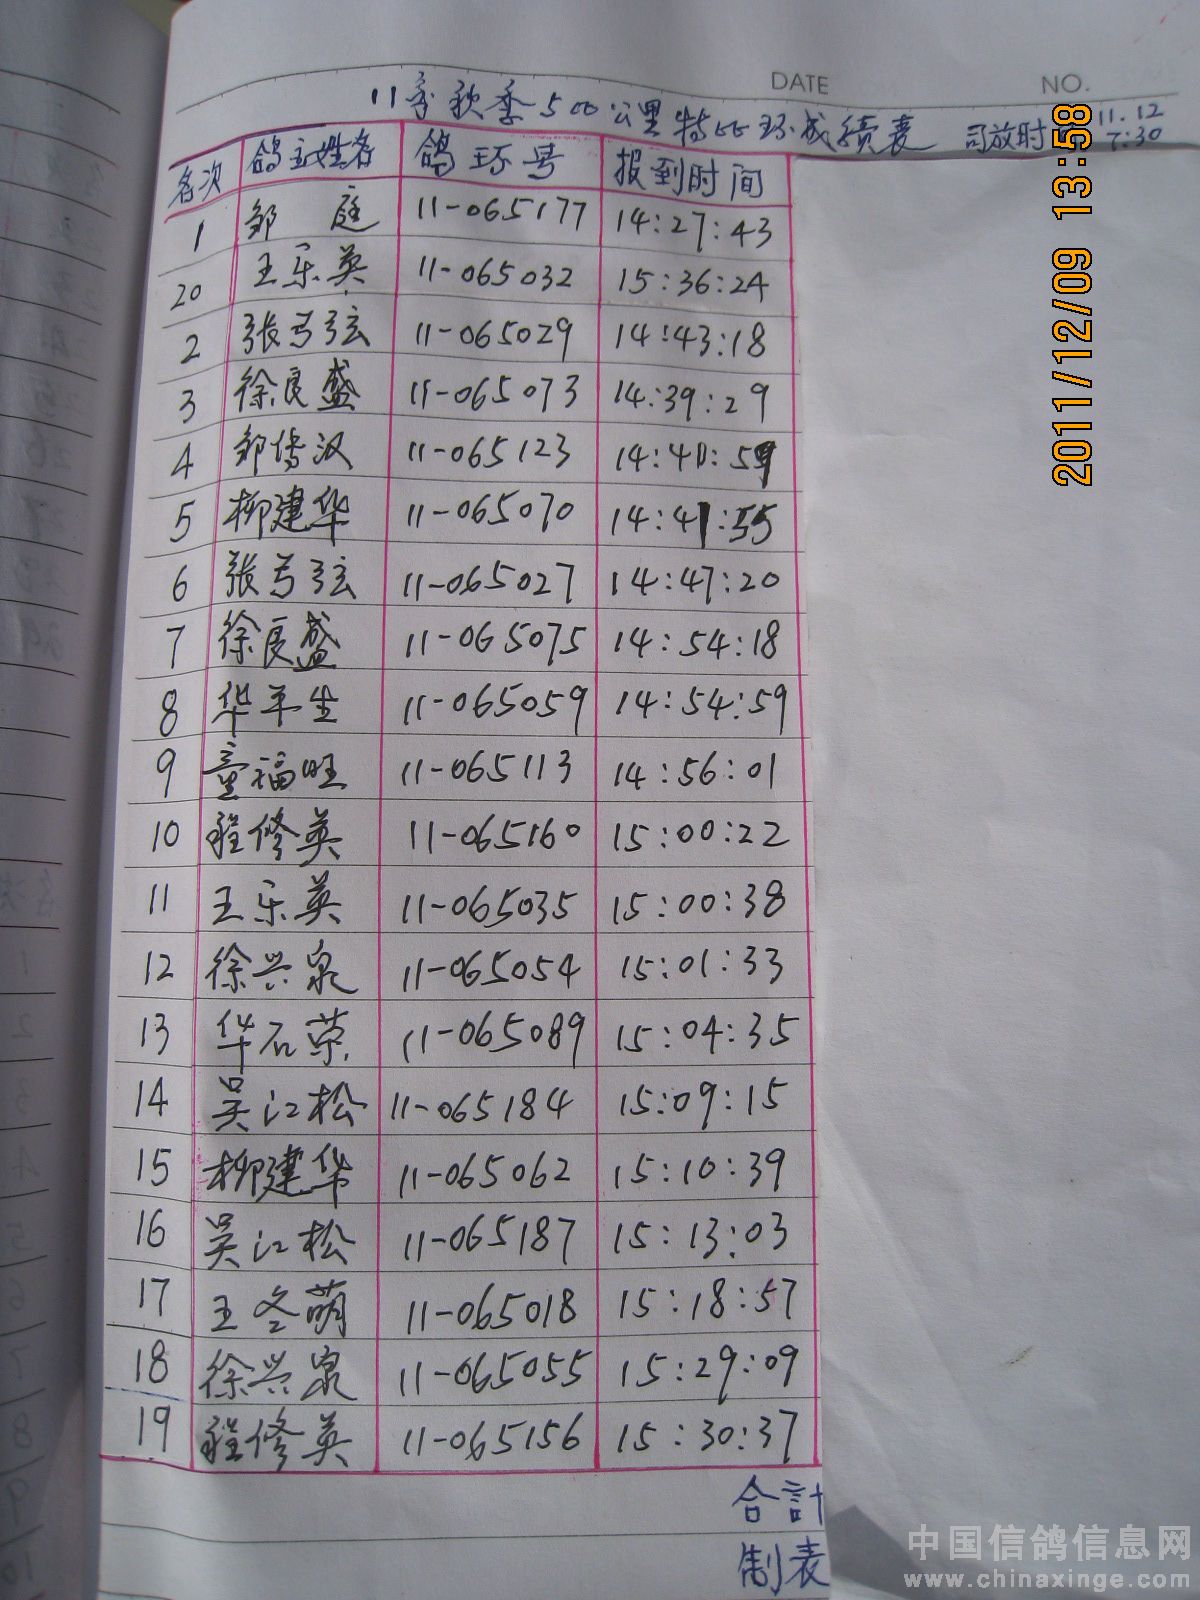 DATE NO.
11年秋季500公里特比环成绩表 司放时 11.12
7:30
2011/12/09 13:58
名次 鸽主姓名 鸽环号 报到时间
1 邹庭 11-065177 14:27:43
20 王乐英 11-065032 15:36:24
2 张弓弦 11-065029 14:43:18
3 徐良盛 11-065073 14:39:29
4 邹传汉 11-065123 14:40:59
5 柳建华 11-065070 14:41:55
6 张弓弦 11-065027 14:47:20
7 徐良盛 11-065075 14:54:18
8 华平生 11-065059 14:54:59
9 童福旺 11-065113 14:56:01
10 程修英 11-065160 15:00:22
11 王乐英 11-065035 15:00:38
12 徐兴泉 11-065054 15:01:33
13 华石荣 11-065089 15:04:35
14 吴江松 11-065184 15:09:15
15 柳建华 11-065062 15:10:39
16 吴江松 11-065187 15:13:03
17 王冬萌 11-065018 15:18:57
18 徐兴泉 11-065055 15:29:09
19 程修英 11-065156 15:30:37
合計
制表
中国信鸽信息网
www.chinaxinge.com